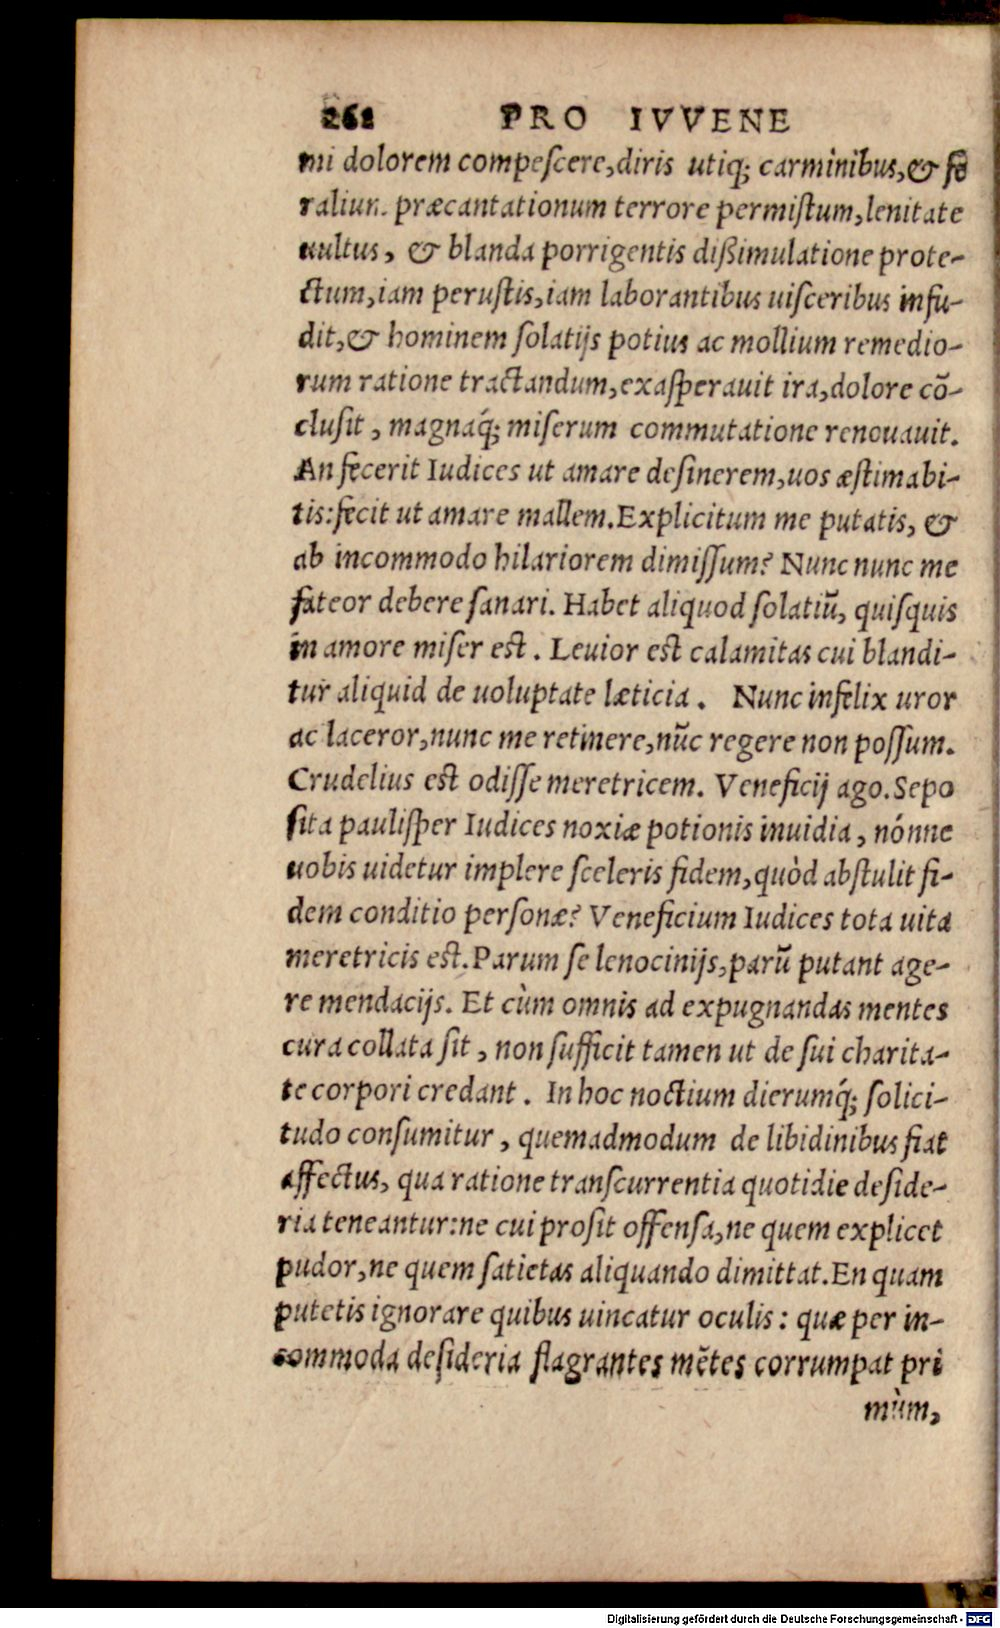 262 PRO IVVENE
mi dolorem compeſcere,diris utiq; carminibus,& fe
ralium præcantationum terrore permiſtum,lenitate
uultus, & blanda porrigentis dißimulatione prote-
ctum,iam peruſtis,iam laborantibus uiſceribus infu-
dit,& hominem ſolatijs potius ac mollium remedio-
rum ratione tractandum,exaſperauit ira,dolore cõ-
cluſit, magnaq́; miſerum commutatione renouauit.
An fecerit Iudices ut amare deſinerem,uos æſtimabi-
tis:fecit ut amare mallem.Explicitum me putatis, &
ab incommodo hilariorem dimiſſum? Nunc nunc me
fateor debere ſanari. Habet aliquod ſolatiũ, quiſquis
in amore miſer est. Leuior est calamitas cui blandi-
tur aliquid de uoluptate læticia. Nunc infelix uror
ac laceror,nunc me retinere,nũc regere non poſſum.
Crudelius est odiſſe meretricem. Veneficij ago.Sepo
ſita pauliſper Iudices noxiæ potionis inuidia, nónne
uobis uidetur implere ſceleris fidem,quòd abſtulit fi-
dem conditio perſonæ? Veneficium Iudices tota uita
meretricis est.Parum ſe lenocinijs,parũ putant age-
re mendacijs. Et cùm omnis ad expugnandas mentes
cura collata ſit, non ſufficit tamen ut de ſui charita-
te corpori credant. In hoc noctium dierumq́; ſolici-
tudo conſumitur, quemadmodum de libidinibus fiat
affectus, qua ratione tranſcurrentia quotidie deſide-
ria teneantur:ne cui proſit offenſa,ne quem explicet
pudor,ne quem ſatietas aliquando dimittat.En quam
putetis ignorare quibus uincatur oculis: quæ per in-
commoda deſideria flagrantes mẽtes corrumpat pri
mùm,
Digitalisierung gefördert durch die Deutsche Forschungsgemeinschaft - DFG